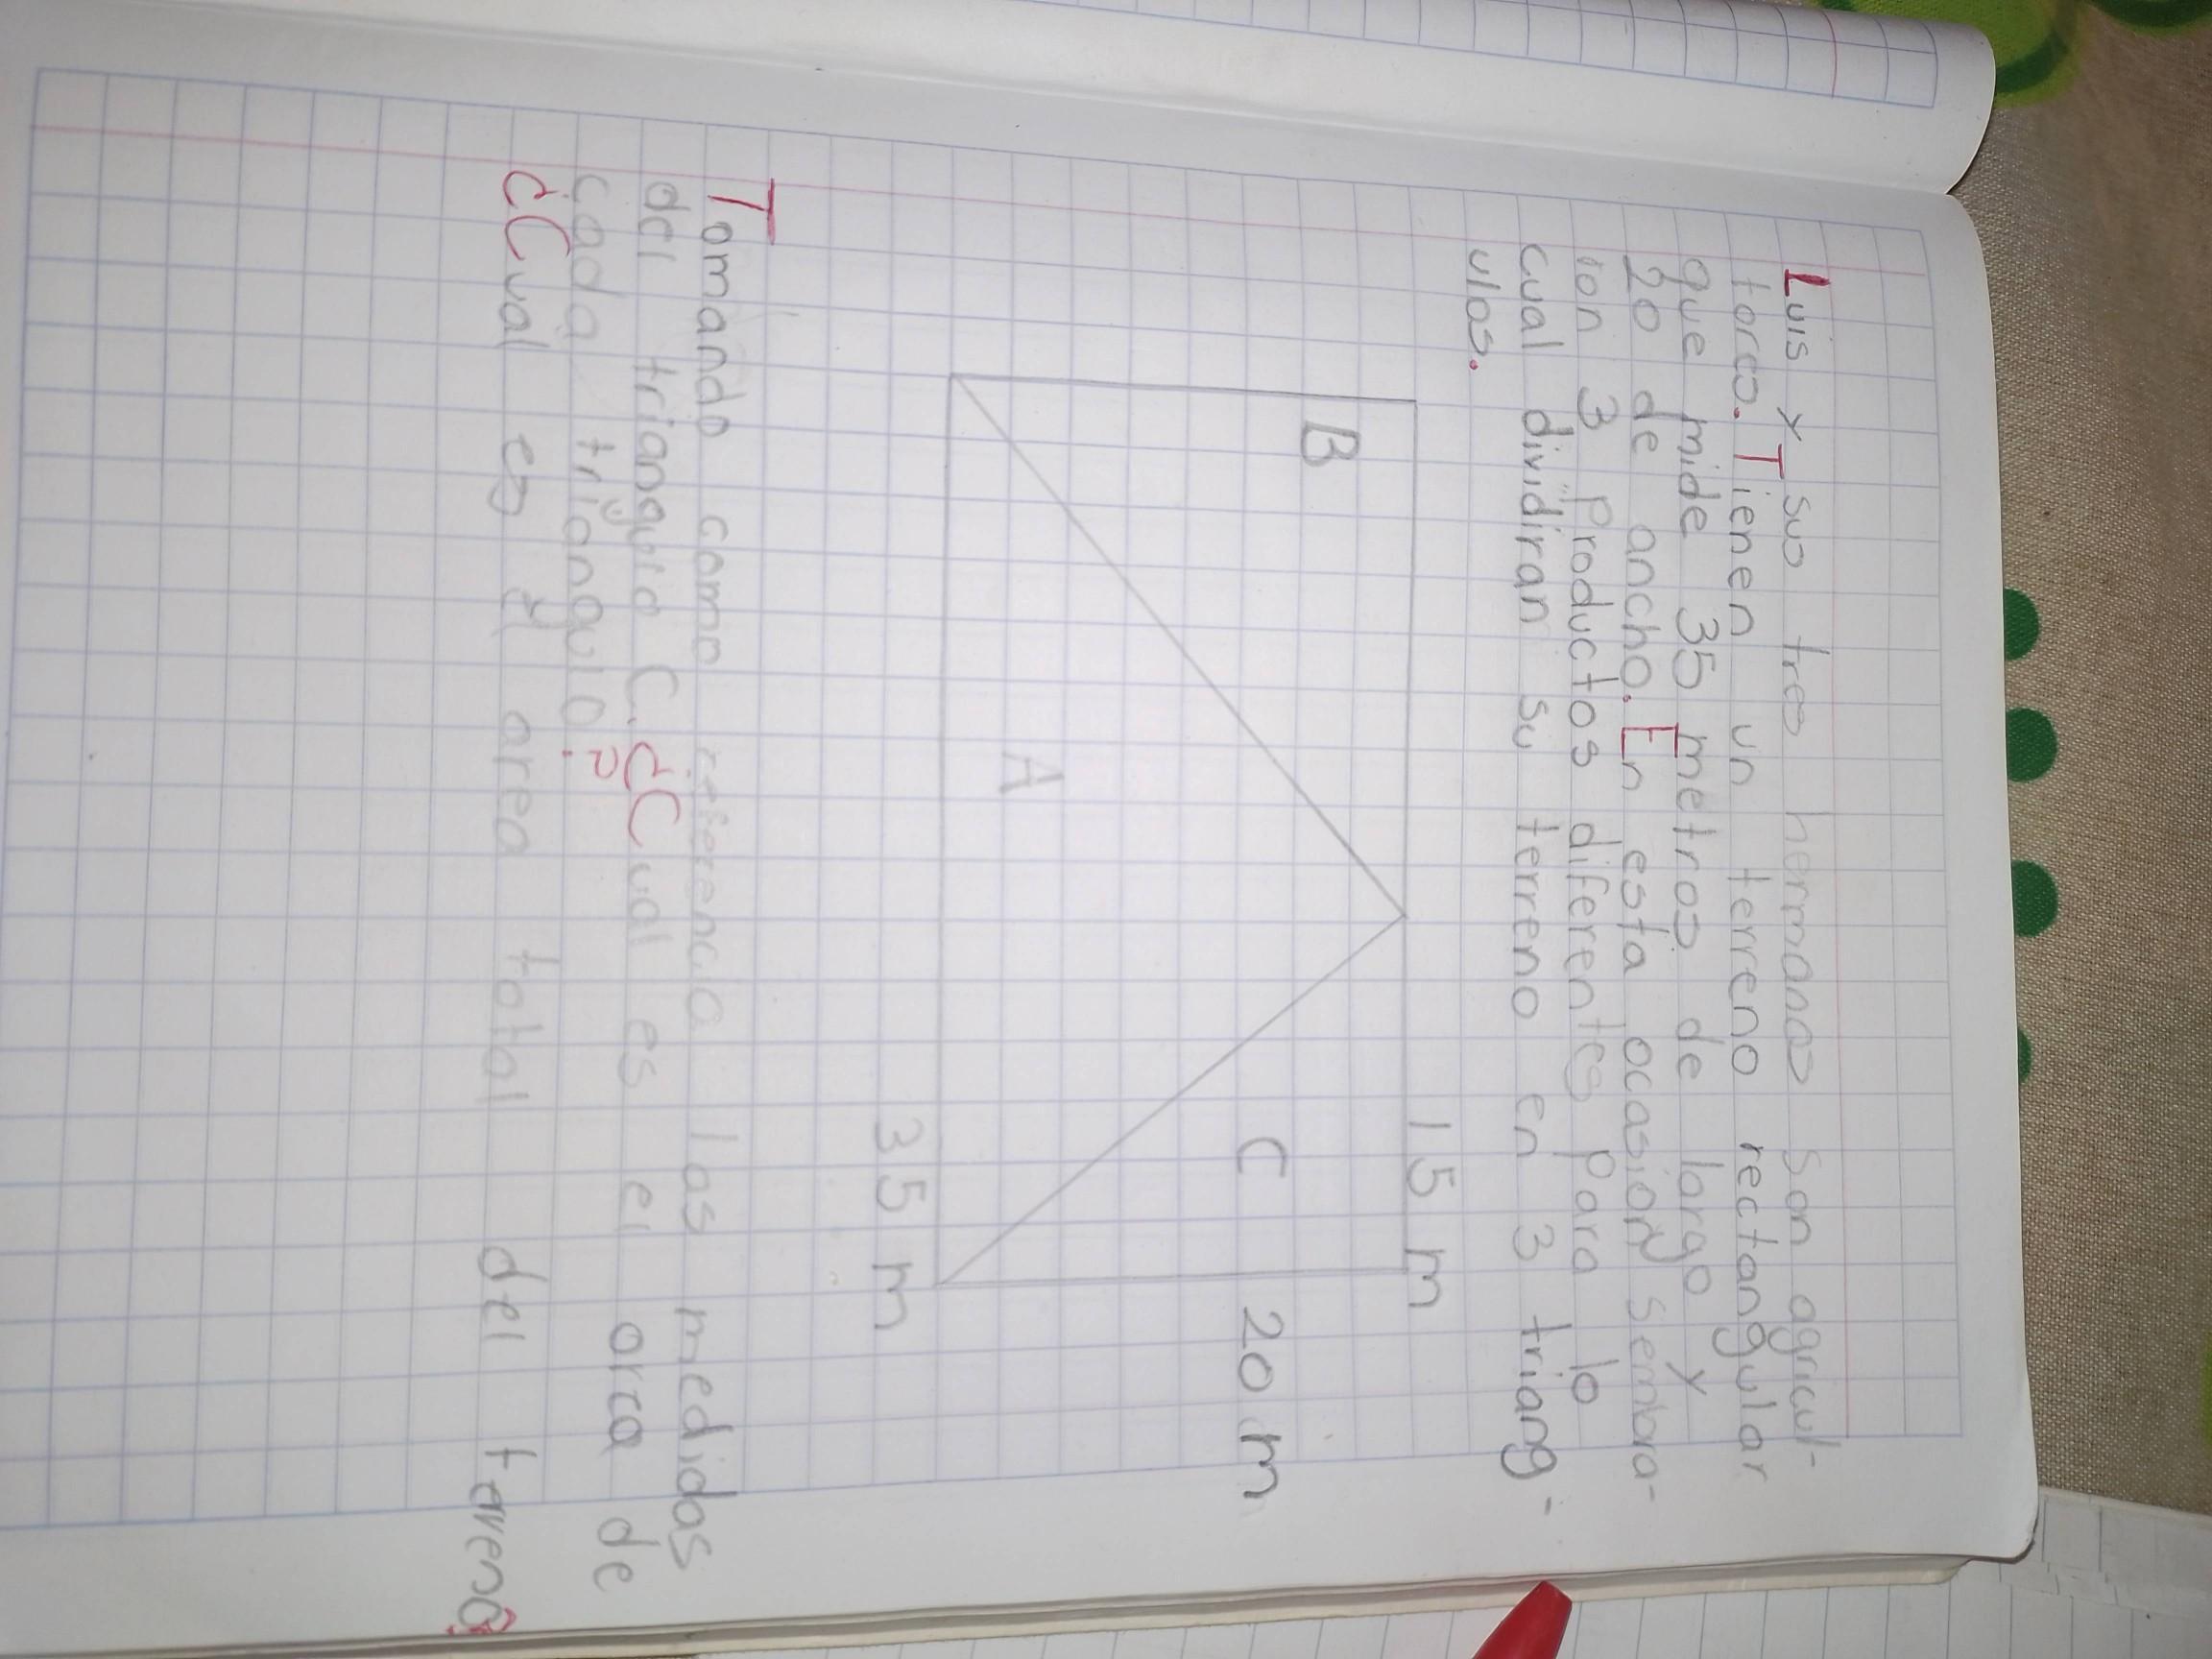 Luis y sus tres hermanos son agricul-
tores. Tienen un terreno rectangular
que mide 35 metros de largo y
20 de ancho. En esta ocasión sembra-
ran 3 Productos diferentes para lo
cual dividiran su terreno en 3 triang-
ulos.
15 m
B
C
20 m
A
35 m
Tomando como referencia las medidas
del triangulo C. ¿Cual es el area de
cada triangulo?
¿Cual es el area total del terreno?